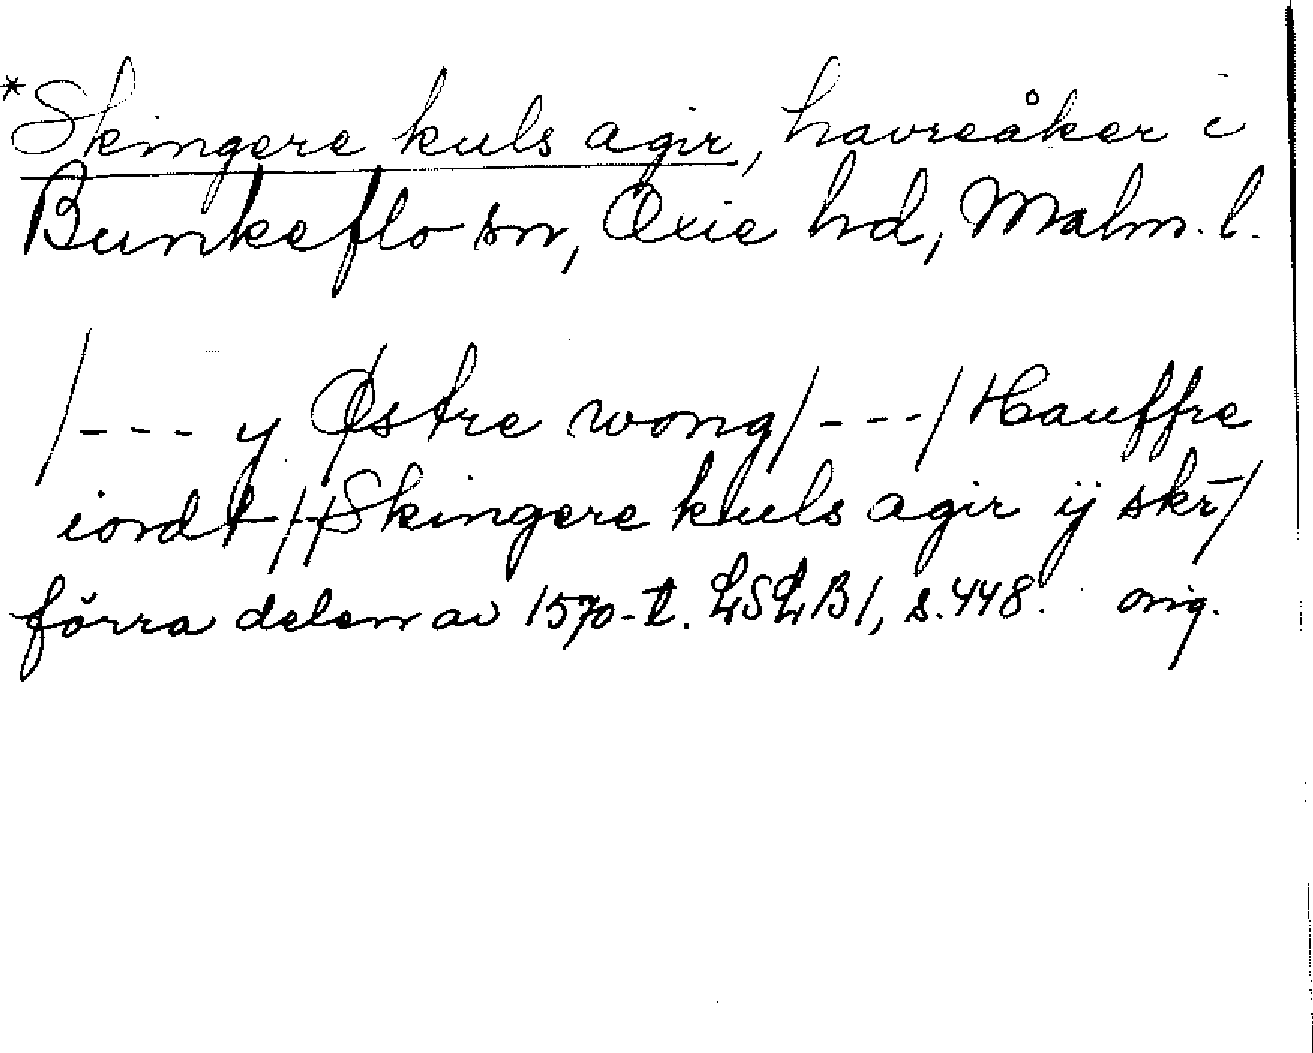 *Skingere kuls agir, havreåker i
Bunkeflo sn, Oxie hd, Malm. l.
/--- y Østre wong/---/ Hauffre
iordt // Skingere kuls agir ij skr̄/
förra delen av 1570-t. LSLB1, s. 448. orig.